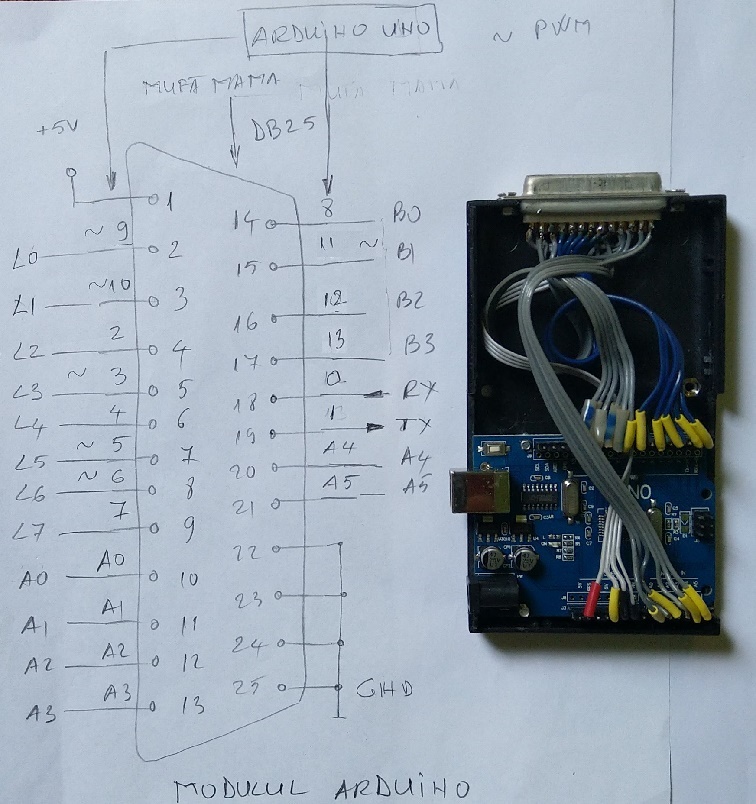 ARDUINO UNO
~ PWM
MUFĂ MAMA
MUFA MAMA
+5V
DB25
1
14 8 B0
~ 9
L0 2
11 ~
15 B1
~10
L1 3
12 B2
16
2
L2 4
13
17 B3
~ 3
L3 5
0
18 RX
4
L4 6
1
19 TX
~ 5
L5 7
A4
20 A4
~ 6
L6 8
A5
21 A5
7
L7 9
22
A0
A0 10
23
A1
A1 11
24
A2
A2 12
25 GND
A3
A3 13
MODULUL ARDUINO
NO